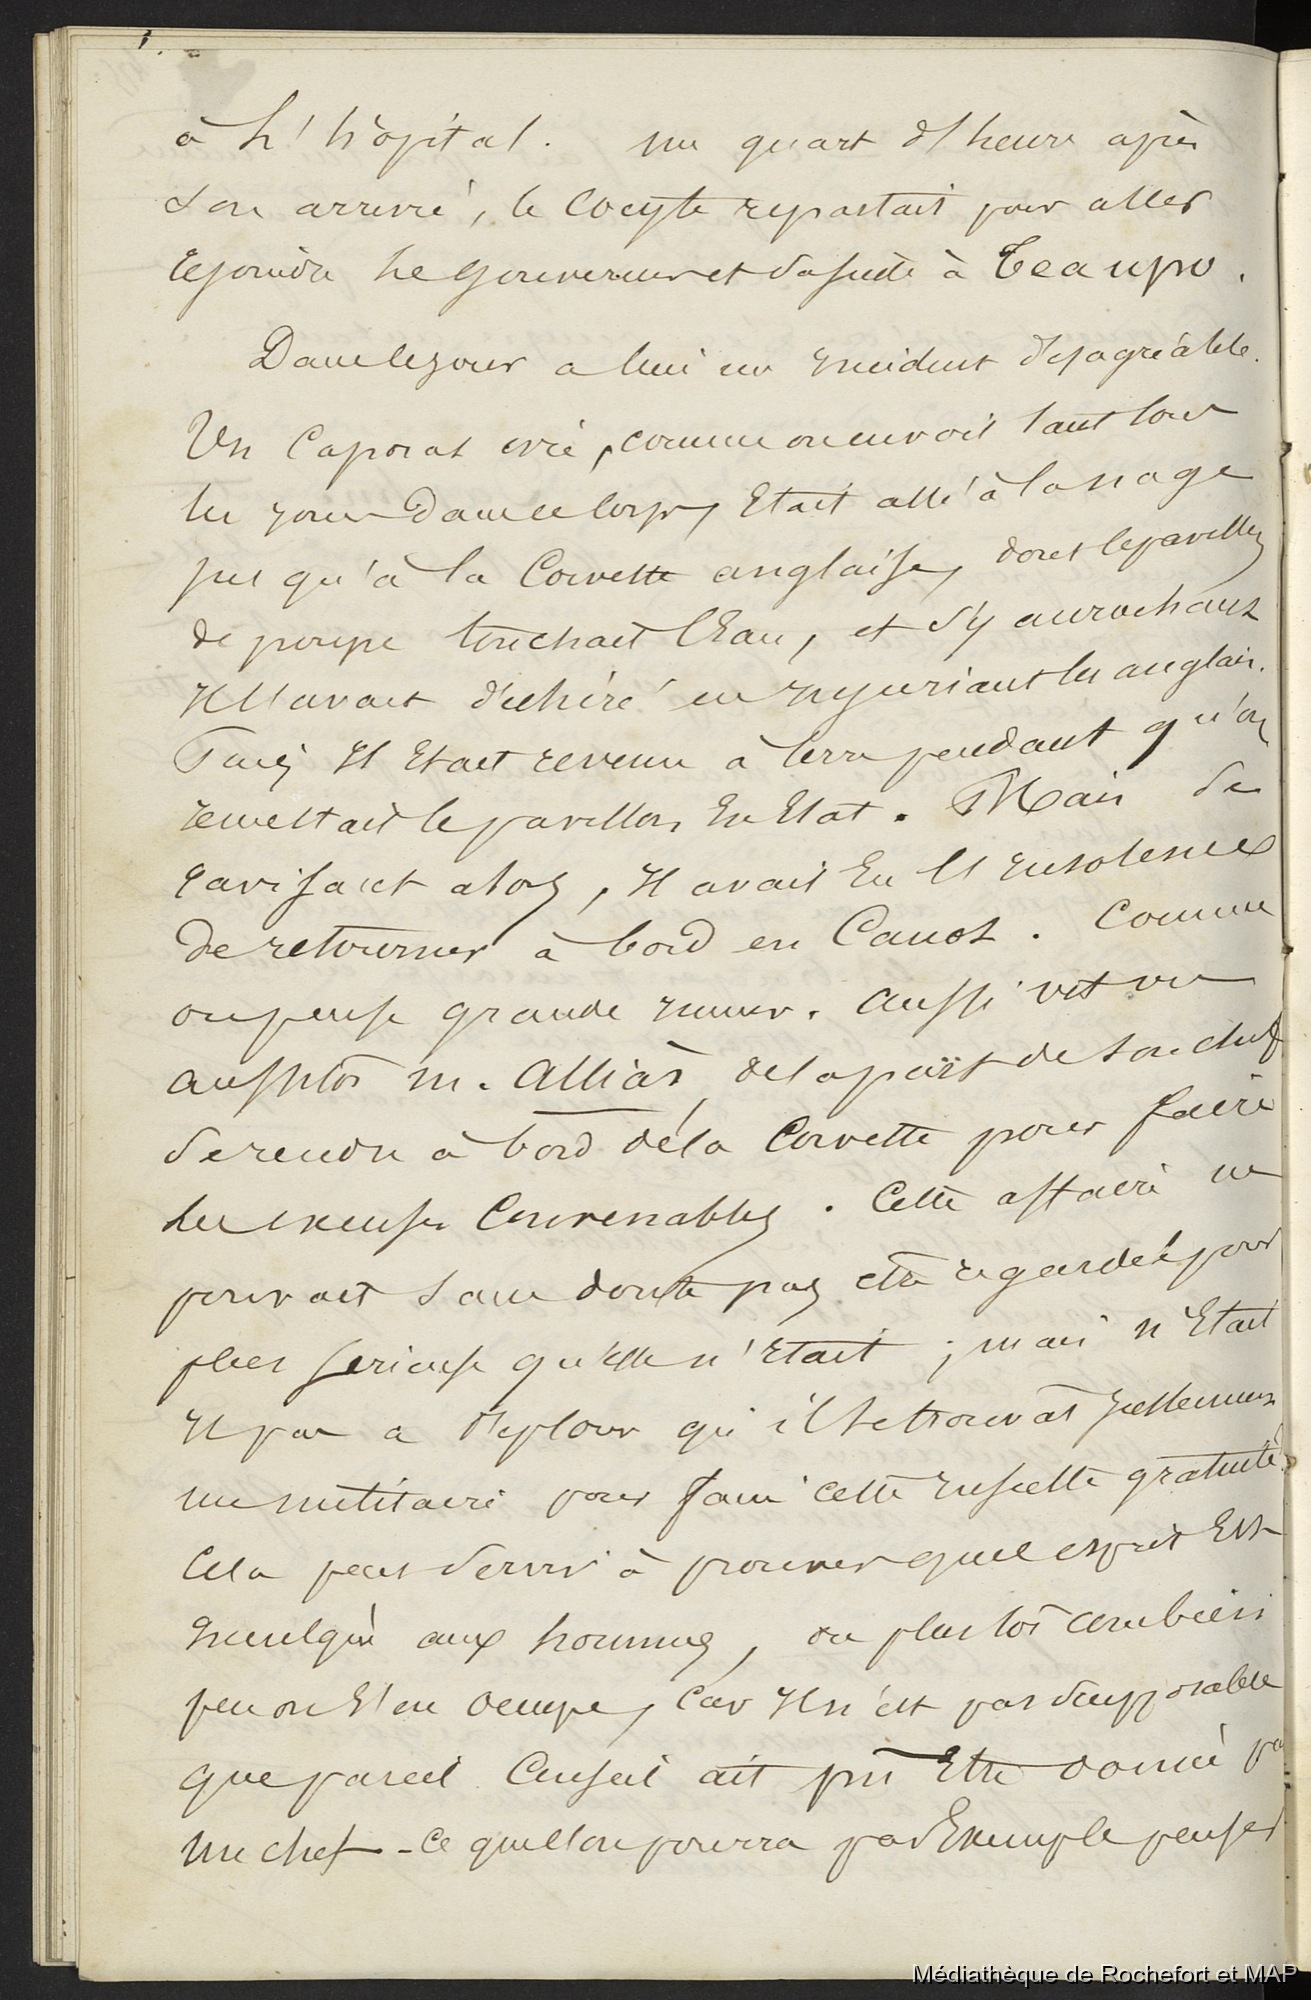 à l'hôpital. un quart d'heure après
son arrivé, le Cocyte repartait pour aller
rejoindre le gouverneur et sa suite à Teaupo.
Dans le jour a lieu un incident désagréable.
Un Caporal ivre, comme on en voit tant tous
les jours dans ce corps, Etait allé à la nage
jusqu'à la Corvette anglaise, dont le pavillon
de poupe touchait l'Eau, et s'y accrochant
Il l'avait déchiré en injuriant les anglais.
Puis Il Etait revenu à terre pendant qu'on
remettait le pavillon En Etat. Mais se
ravisant alors, Il avait Eu l'insolence
de retourner à bord en Canot. Comme
on pense grande rumeur. Aussi vit on
aussitôt m. Alliàs, de la part de son chef
se rendre à bord de la Corvette pour faire
les excuses Convenables. Cette affaire ne
pouvait sans doute pas être regardée pour
plus sérieuse qu'elle n'était ; mais n'Etait
Il pas a déplorer qu'il se trouvât justement
un militaire pour faire cette insulte gratuite.
Cela peut servir à prouver quel esprit Est
inculqué aux hommes, ou plustôt combien
peu on s'en occupe, Car Il n'est pas supposable
que pareil Conseil ait pu Etre donné par
un chef - Ce que l'on pourra par Exemple penser
Médiathèque de Rochefort et MAP